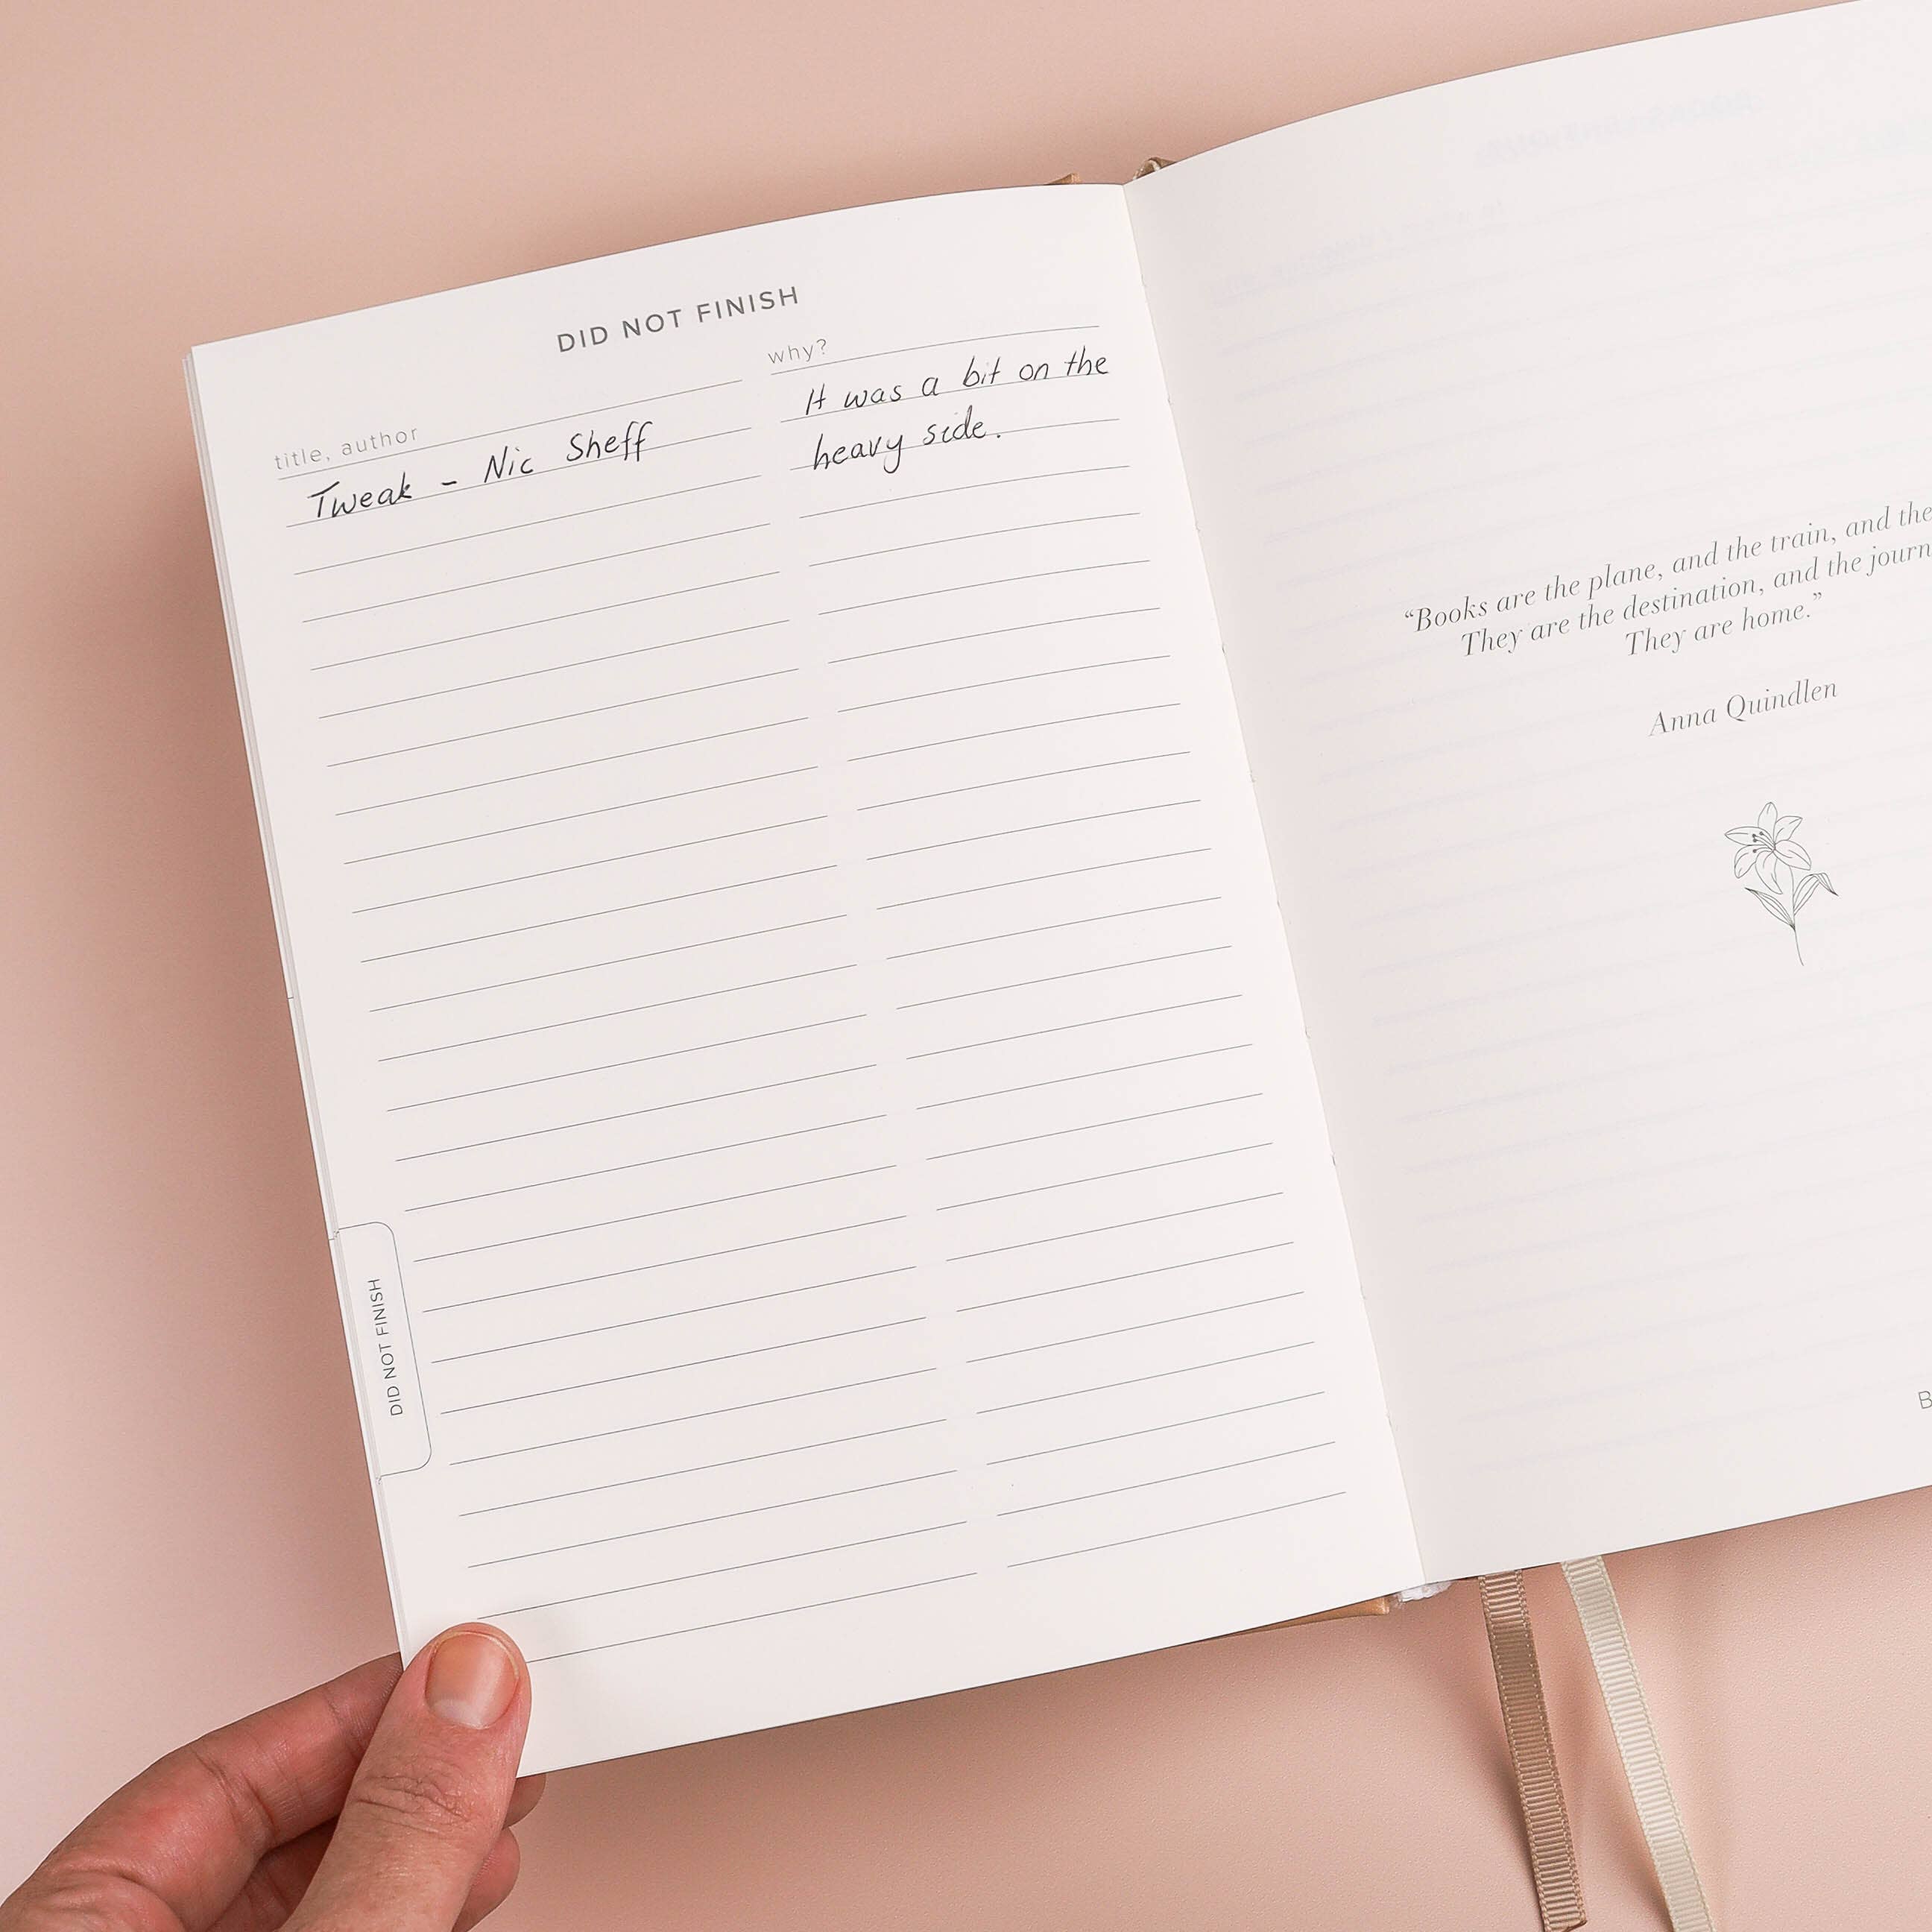 DID NOT FINISH
title, author
why?
Tweak - Nic Sheff
It was a bit on the
heavy side.
DID NOT FINISH
"Books are the plane, and the train, and the
They are the destination, and the journ
They are home."
Anna Quindlen
B